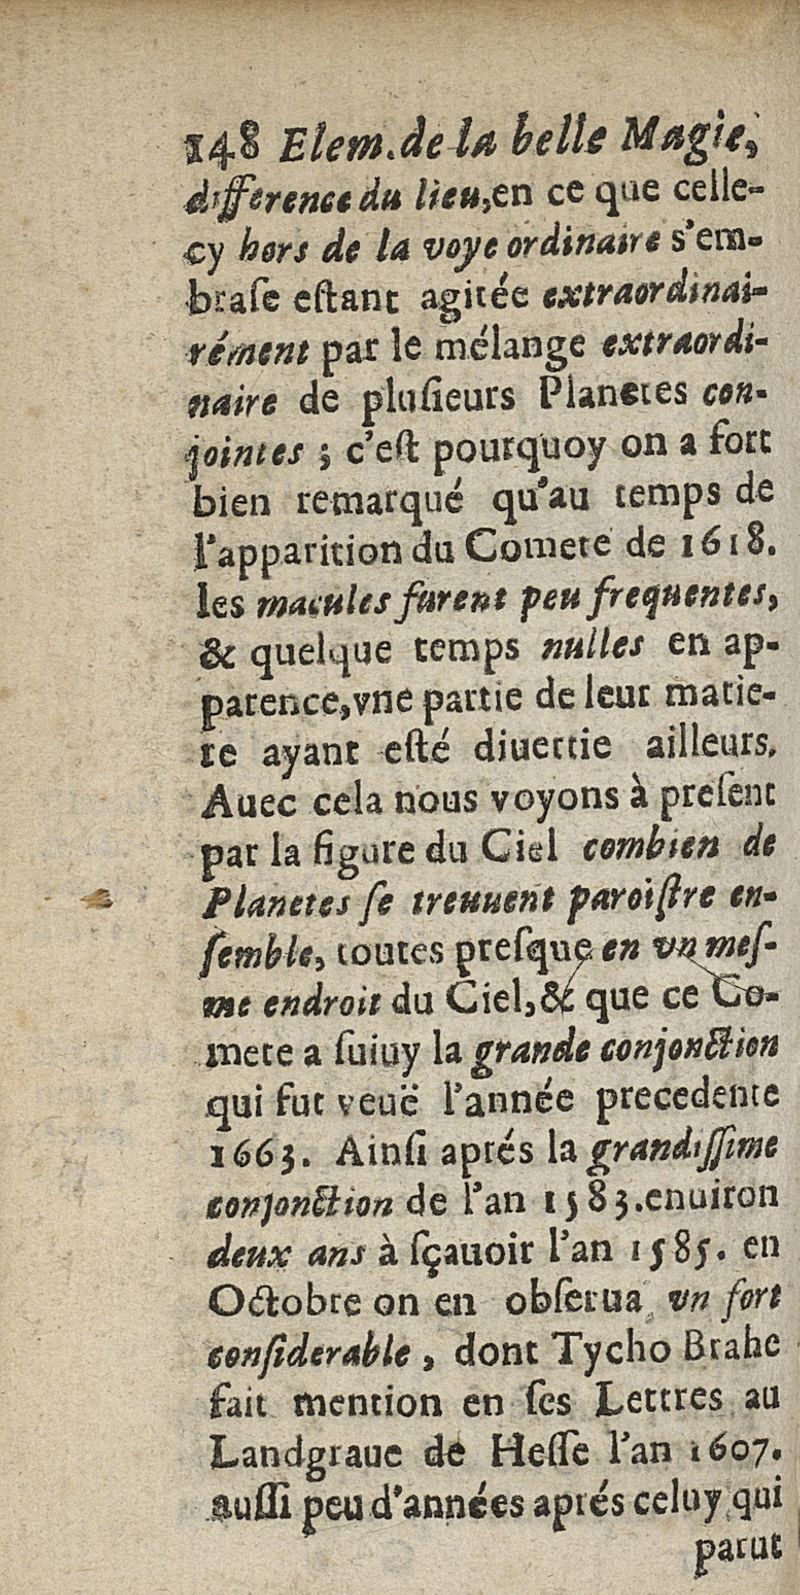 148 Elem. de la belle Magie,
difference du lieu, en ce que celle-
cy hors de la voye ordinaire s'em-
braſe eſtant agitée extraordinai-
rément par le mélange extraordi-
naire de pluſieurs Planetes con-
jointes ; c'eſt pourquoy on a fort
bien remarqué qu'au temps de
l'apparition du Comete de 1618.
les macules furent peu frequentes,
& quelque temps nulles en ap-
parence, vne partie de leur matie-
re ayant eſté diuertie ailleurs.
Auec cela nous voyons à preſent
par la figure du Ciel combien de
Planetes ſe treuuent paroiſtre en-
ſemble, toutes preſque en vn meſ-
me endroit du Ciel, & que ce Co-
mete a ſuiuy la grande conjonction
qui fut veuë l'année precedente
1663. Ainſi aprés la grandiſſime
conjonction de l'an 1583. enuiron
deux ans à ſçauoir l'an 1585. en
Octobre on en obſerua vn fort
conſiderable, dont Tycho Brahe
fait mention en ſes Lettres au
Landgraue de Heſſe l'an 1607.
auſſi peu d'années aprés celuy qui
parut